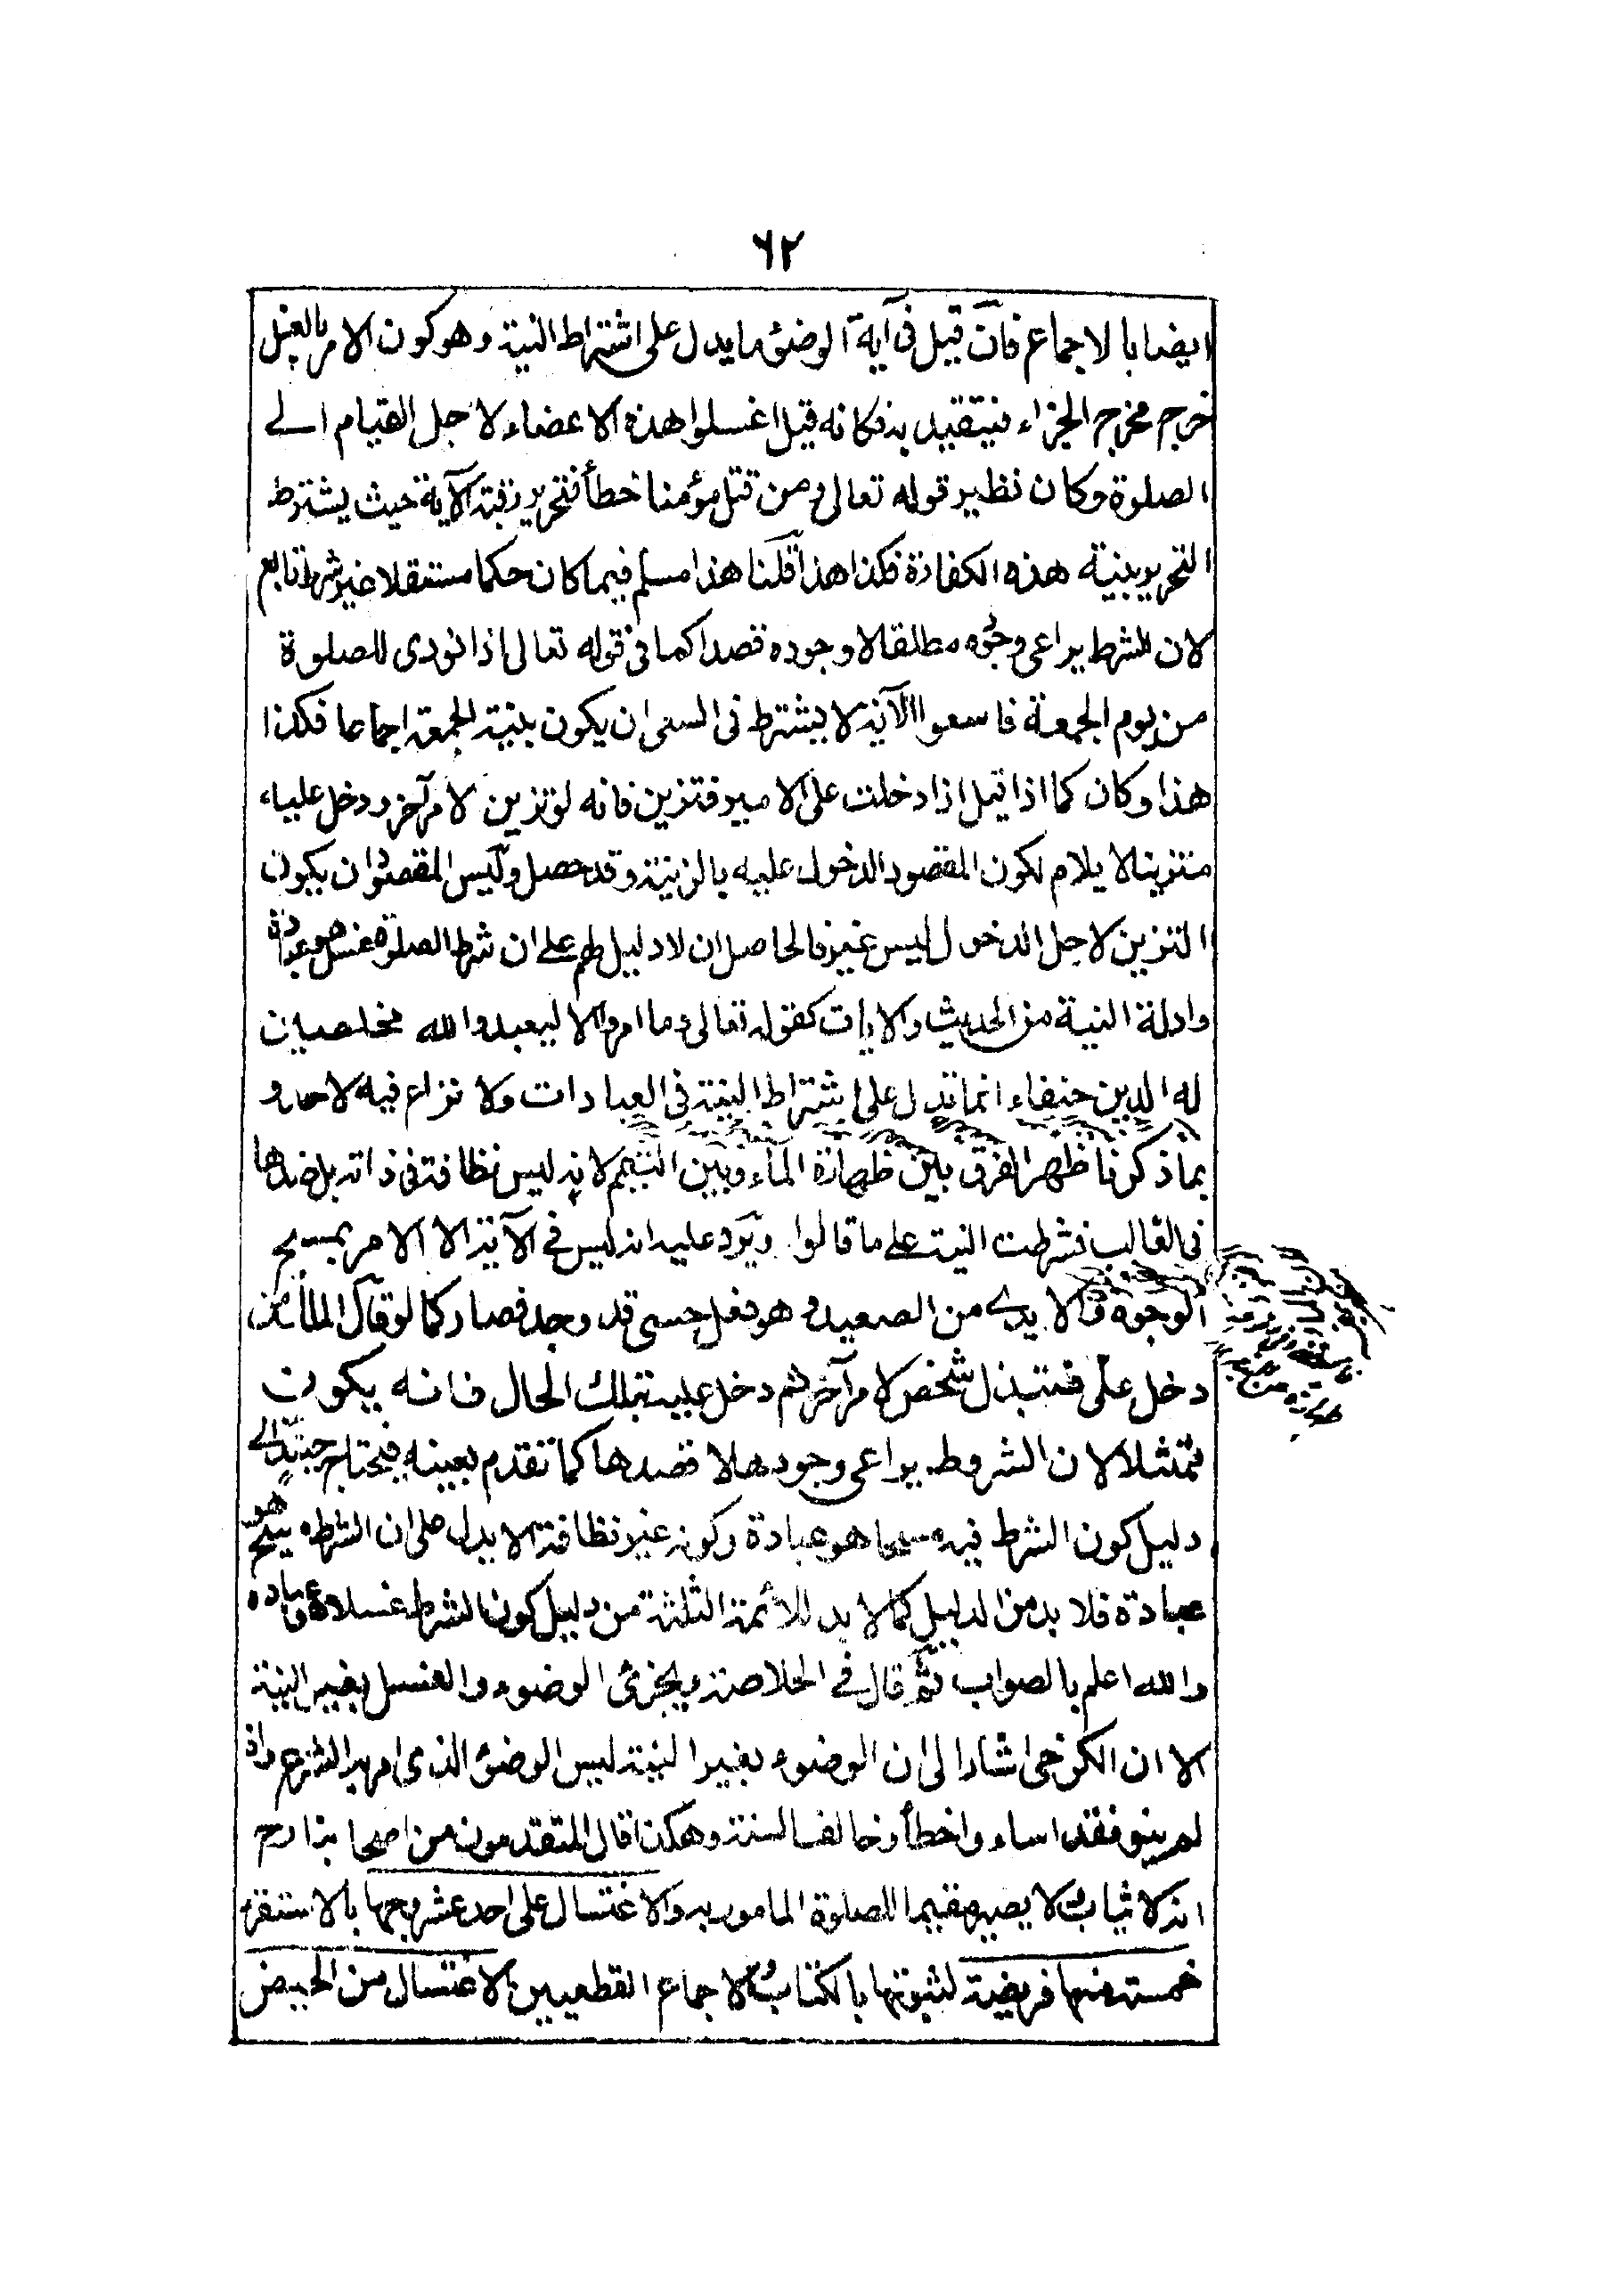 ٦٢
ايضا بالاجماع فان قيل فى آية الوضوء ما يدل على اشتراط النية وهو كون الامر بالغسل
خرج مخرج الجزاء فيتقيد به فكانه قيل اغسلوا هذه الاعضاء لاجل القيام الے
الصلوة وكان نظير قوله تعالى ومن قتل مؤمنا خطأ فتحرير رقبة الآية حيث يشترط
التحرير بنية هذه الكفارة فكذا هذا قلنا هذا مسلم فيما كان حكما مستقلا غير شرط تابع
لان الشرط يراعى وجوده مطلقا لا وجوده قصدا كما فى قوله تعالى اذا نودى للصلوة
من يوم الجمعة فاسعوا الآية لا يشترط فى السعى ان يكون بنية الجمعة اجماعا فكذا
هذا وكان كما اذا قيل اذا دخلت على الامير فتزين فانه لو تزين لامر آخر ودخل عليه
متزينا لا يلام لكون المقصود الدخول عليه بالزينة وقد حصل وليس المقصود ان يكون
التزين لاجل الدخول ليس غير فالحاصل ان لا دليل لهم على ان شرط الصلوة غسل هو عبادة
وادلة النية من الحديث والايات كقوله تعالى وما امروا الا ليعبدوا الله مخلصين
له الدين حنفاء انما تدل على اشتراط النية فى العبادات ولا نزاع فيه لاحد و
بما ذكرنا ظهر الفرق بين طهارة الماء وبين التيمم لانه ليس نظافة فى ذاته بل ضدها
فى الغالب فشرطت النية على ما قالوا ويرد عليه انه ليس فى الآية الا الامر بمسح
الوجوه والايدے من الصعيد وهو فعل حسى قد وجد فصار كما لو قال الملك من
دخل علىّ فتبذل شخص لامر آخر ثم دخل عليه بتلك الحال فانه يكون
ممتثلا لان الشروط يراعى وجودها لا قصدها كما تقدم بعينه فيحتاج حينئذ الے
دليل كون الشرط فيه مسحا هو عبادة وكونه غير نظافة لا يدل على ان الشرط مسح هو
عبادة فلا بد من الدليل كما لا بد للأئمة الثلثة من دليل كون الشرط غسلا هو عبادة
والله اعلم بالصواب ثم قال فى الخلاصة ويجزئ الوضوء والغسل بغير النية
الا ان الكرخى اشار الى ان الوضوء بغير النية ليس الوضوء الذى امر به الشرع واذ
لم ينو فقد اساء واخطأ وخالف السنة وهكذا قال المتقدمون من اصحابنا رح
انه لا يثاب لا يصير مقيما للصلوة المامور به والاغتسال على احد عشر وجها بالاستقر
خمسة منها فريضة لثبوتها بالكتاب والاجماع القطعيين الاغتسال من الحيض